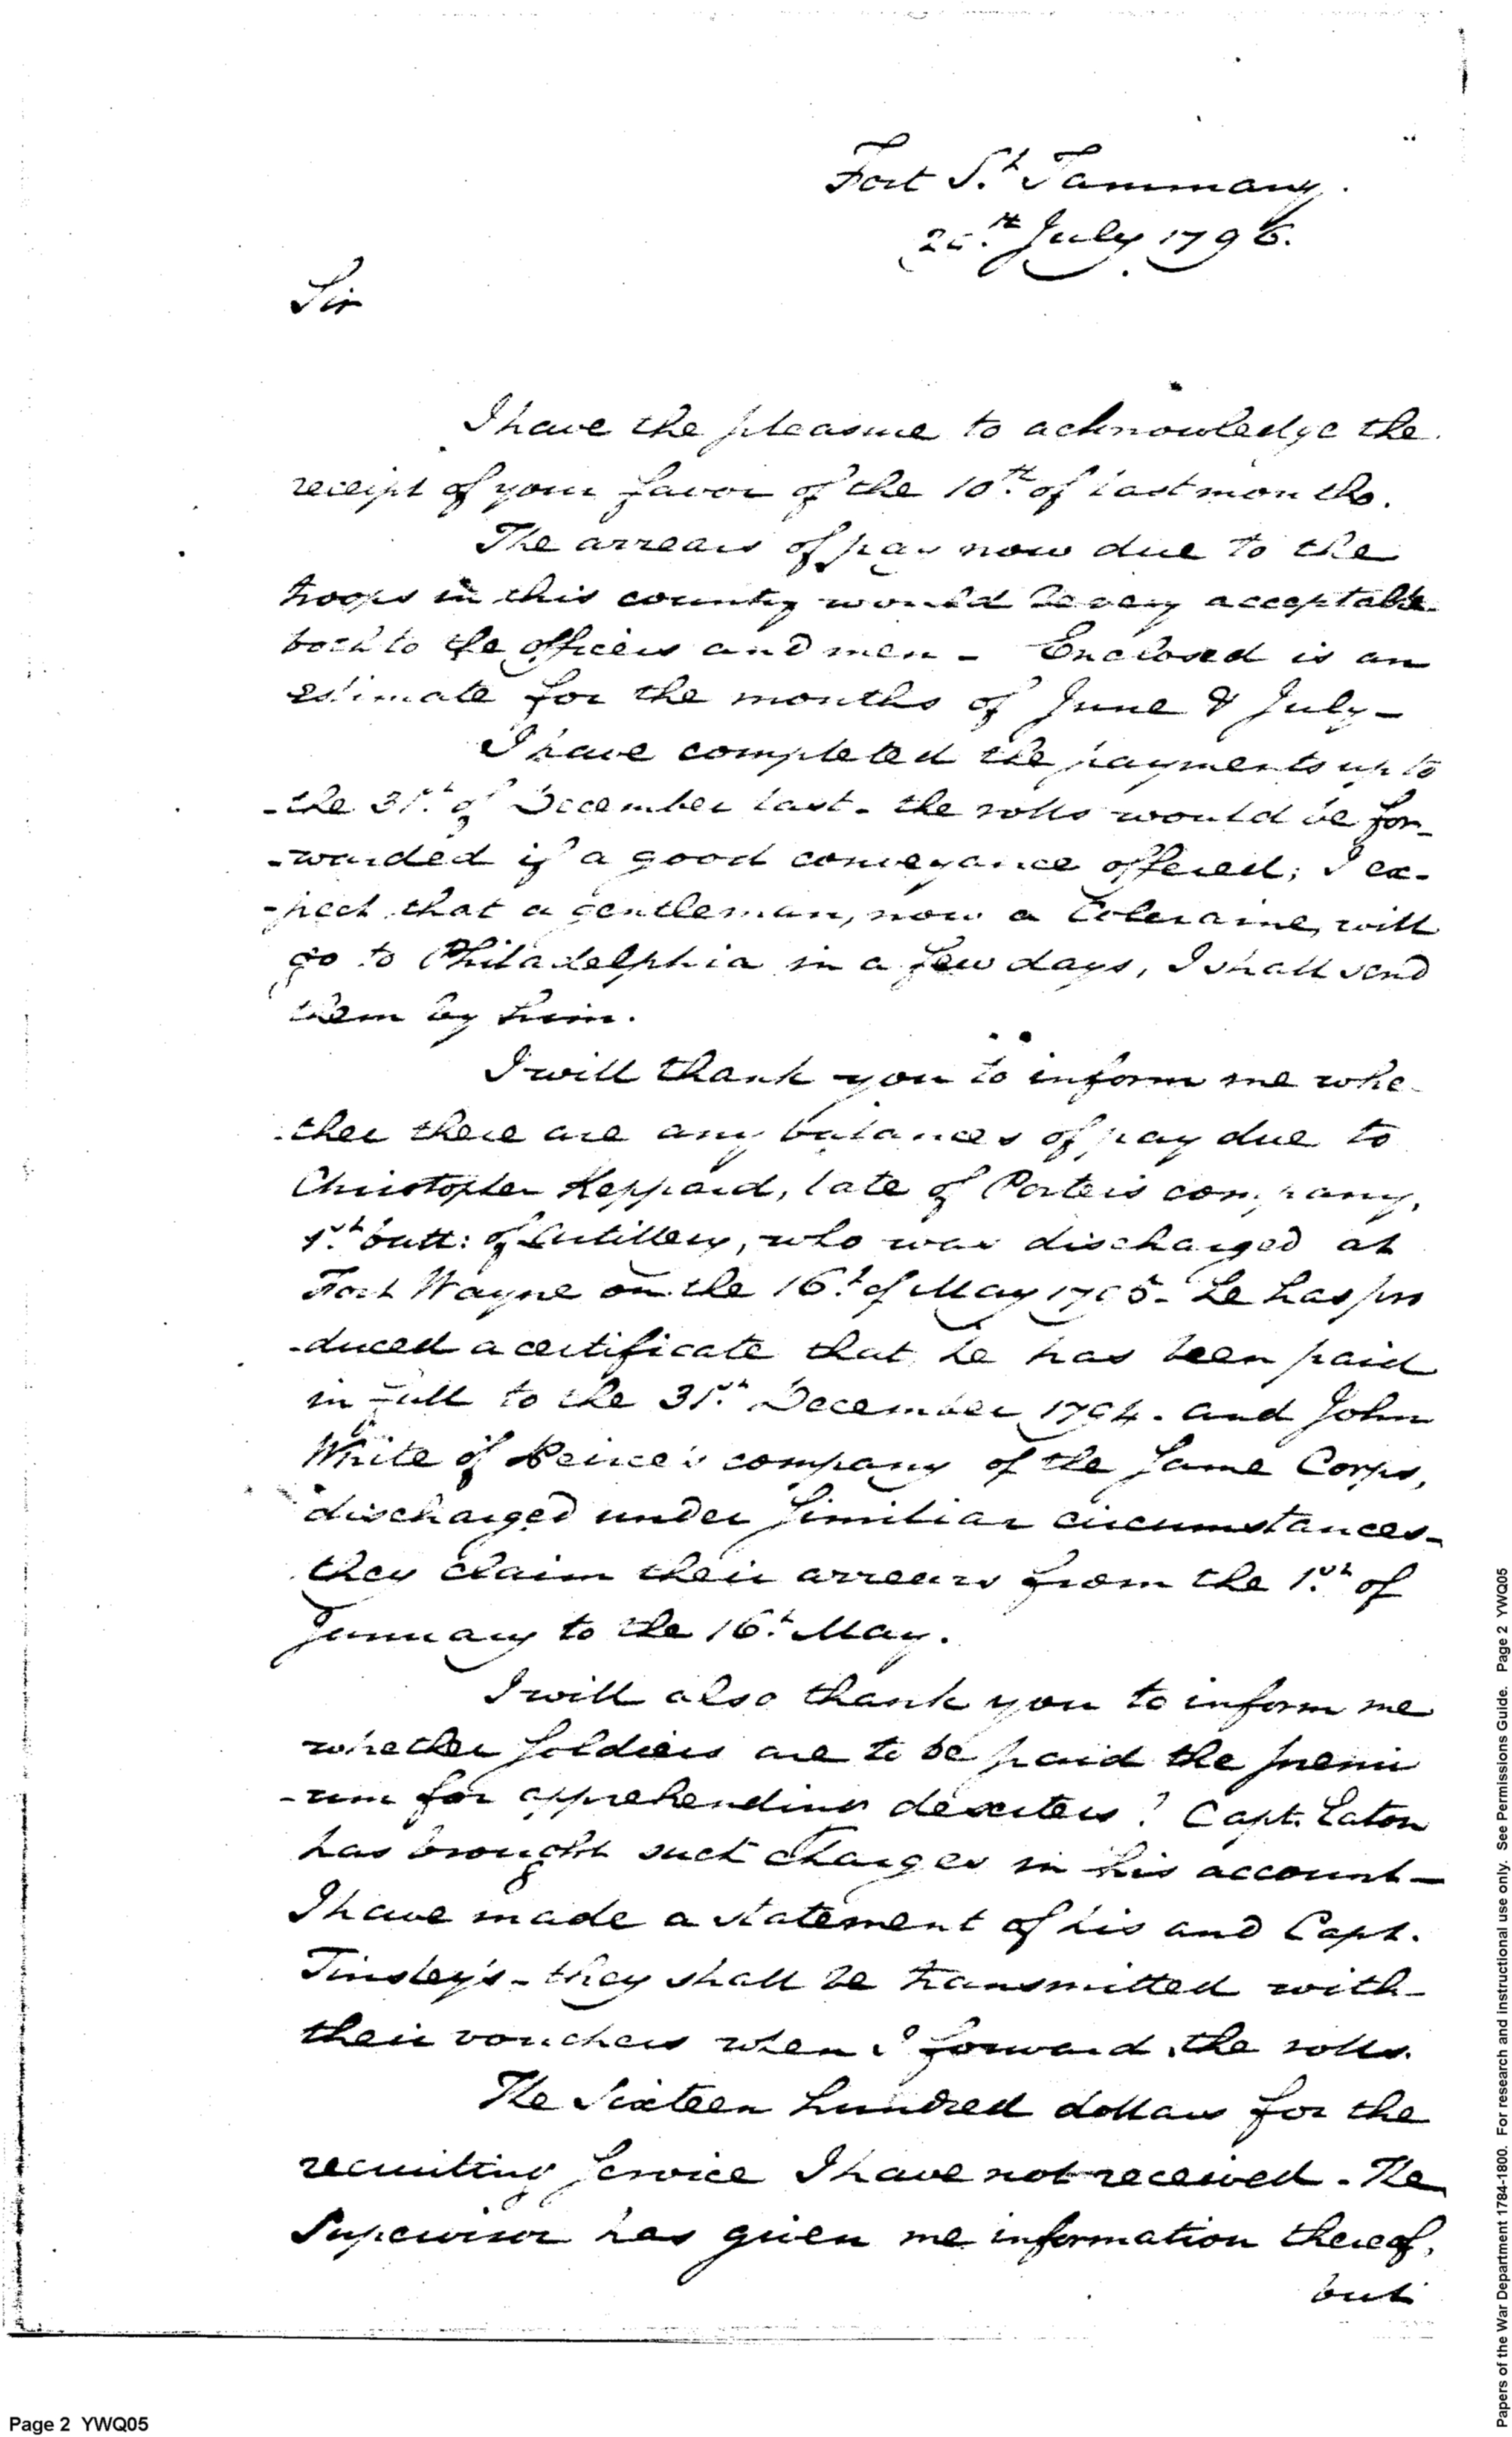 Fort St. Tammany.
July 1796.
Sir
I have the pleasure to acknowledge the
receipt of your favor of the 10th. of last months.
The arrears of pay now due to the
troops in this country would be very acceptable
both to the officers and men - Enclosed is an
estimate for the months of June & July -
I have completed the payments up to
-the 31st. of December last - the rolls would be for-
-warded if a good conveyance offered; I ex-
-pect that a gentleman, now a Coleraine, will
go to Philadelphia in a few days, I shall send
them by him.
I will thank you to inform me whe-
-ther there are any balances of pay due to
Christopher Heppard, late of Porter's company,
1st. batt: of Artillery, who was discharged at
Fort Wayne on the 16t. of May 1795 - he has pro
-duced a certificate that he has been paid
in full to the 31st. December 1794 - and John
White of Peirce's company of the same Corps,
discharged under similiar circumstances -
they claim their arrears from the 1st. of
January to the 16t. May.
I will also thank you to inform me
whether soldiers are to be paid the premi
-um for apprehending deserters? Capt. Eaton
has brought such charges in his account -
I have made a statement of his and Capt.
Tinsley's - they shall be transmitted with
their vouchers when I forward the rolls.
The Sixteen hundred dollars for the
recruiting service I have not received - The
Supervisor has given me information thereof,
but
Page 2 YWQ05
Papers of the War Department 1784-1800. For research and instructional use only. See Permissions Guide. Page 2 YWQ05